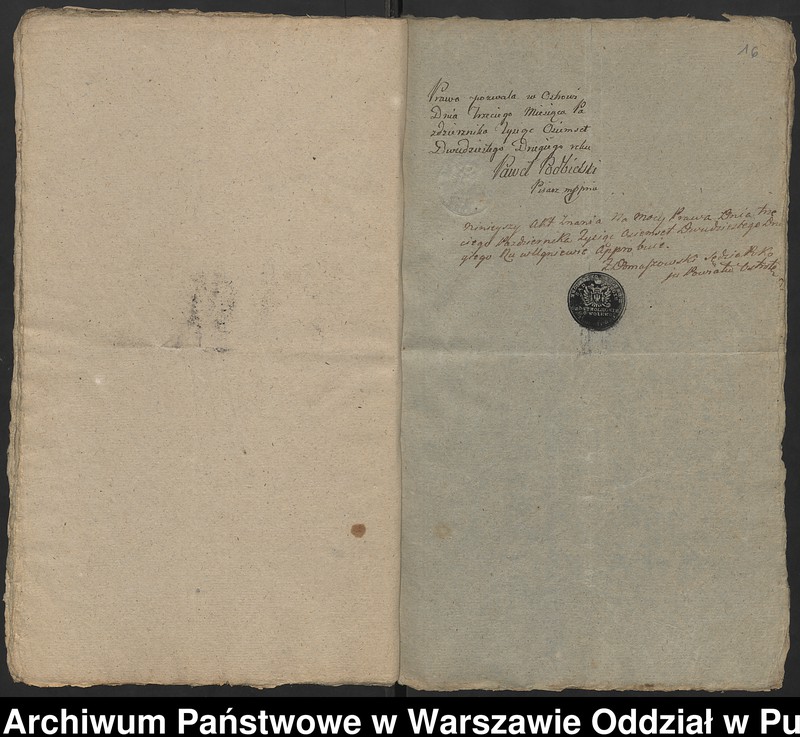 16
Prawo pozwala w Ostrowi
Dnia Trzeciego Miesiąca Pa
zdziernika Tysiąc Osimset
Dwudziestego Drugiego roku
Paweł Podbielski
Pisarz mppria
Ninieyszy Akt Znania Na Mocy Prawa Dnia trze
ciego Pazdziernika Tysiąc Osimset Dwudziestego Dru
giego Ru w Ugniewie Approbuie.
Sędzia Poko
ju Powiatu Ostrołę
Archiwum Państwowe w Warszawie Oddział w Pu